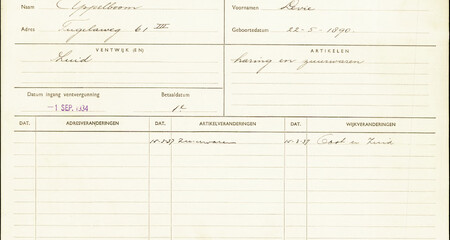 Naam Appelboom Voornamen Levie
Adres Tugelaweg 61 III Geboortedatum 22-5-1890.
VENTWIJK (EN) ARTIKELEN
Zuid haring en zuurwaren
Datum ingang ventvergunning Betaaldatum
-1 SEP. 1934 1e
DAT. ADRESVERANDERINGEN DAT. ARTIKELVERANDERINGEN DAT. WIJKVERANDERINGEN
zuurwaren Oost en Zuid